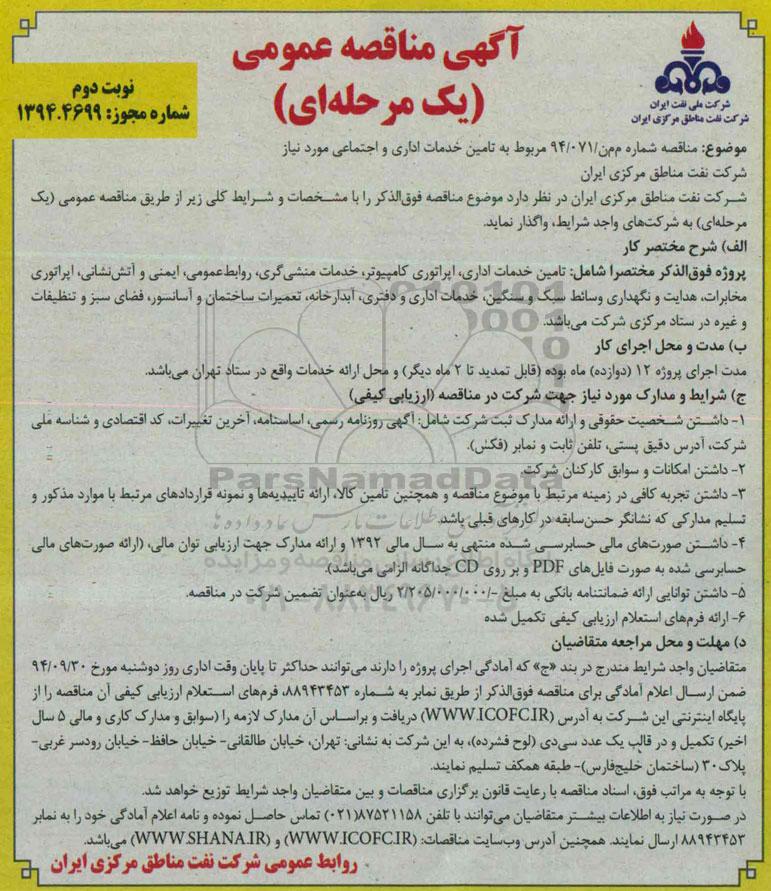 آگهی مناقصه عمومی
(یک مرحله‌ای)
نوبت دوم
شماره مجوز: ۱۳۹۴.۴۶۹۹
شرکت ملی نفت ایران
شرکت نفت مناطق مرکزی ایران
موضوع: مناقصه شماره م‌م‌ن/۹۴/۰۷۱ مربوط به تامین خدمات اداری و اجتماعی مورد نیاز
شرکت نفت مناطق مرکزی ایران
شرکت نفت مناطق مرکزی ایران در نظر دارد موضوع مناقصه فوق‌الذکر را با مشخصات و شرایط کلی زیر از طریق مناقصه عمومی (یک
مرحله‌ای) به شرکت‌های واجد شرایط، واگذار نماید.
الف) شرح مختصر کار
پروژه فوق‌الذکر مختصرا شامل: تامین خدمات اداری، اپراتوری کامپیوتر، خدمات منشی‌گری، روابط‌عمومی، ایمنی و آتش‌نشانی، اپراتوری
مخابرات، هدایت و نگهداری وسائط سبک و سنگین، خدمات اداری و دفتری، آبدارخانه، تعمیرات ساختمان و آسانسور، فضای سبز و تنظیفات
و غیره در ستاد مرکزی شرکت می‌باشد.
ب) مدت و محل اجرای کار
مدت اجرای پروژه ۱۲ (دوازده) ماه بوده (قابل تمدید تا ۲ ماه دیگر) و محل ارائه خدمات واقع در ستاد تهران می‌باشد.
ج) شرایط و مدارک مورد نیاز جهت شرکت در مناقصه (ارزیابی کیفی)
۱- داشتن شخصیت حقوقی و ارائه مدارک ثبت شرکت شامل: آگهی روزنامه رسمی، اساسنامه، آخرین تغییرات، کد اقتصادی و شناسه ملی
شرکت، آدرس دقیق پستی، تلفن ثابت و نمابر (فکس).
۲- داشتن امکانات و سوابق کارکنان شرکت.
ParsNamadData
۳- داشتن تجربه کافی در زمینه مرتبط با موضوع مناقصه و همچنین تامین کالا، ارائه تاییدیه‌ها و نمونه قراردادهای مرتبط با موارد مذکور و
تسلیم مدارکی که نشانگر حسن‌سابقه در کارهای قبلی باشد.
۴- داشتن صورت‌های مالی حسابرسی شده منتهی به سال مالی ۱۳۹۲ و ارائه مدارک جهت ارزیابی توان مالی، (ارائه صورت‌های مالی
حسابرسی شده به صورت فایل‌های PDF و بر روی CD جداگانه الزامی می‌باشد).
۵- داشتن توانایی ارائه ضمانتنامه بانکی به مبلغ -/۲/۲۰۵/۰۰۰/۰۰۰ ریال به‌عنوان تضمین شرکت در مناقصه.
۶- ارائه فرم‌های استعلام ارزیابی کیفی تکمیل شده
د) مهلت و محل مراجعه متقاضیان
متقاضیان واجد شرایط مندرج در بند «ج» که آمادگی اجرای پروژه را دارند می‌توانند حداکثر تا پایان وقت اداری روز دوشنبه مورخ ۹۴/۰۹/۳۰
ضمن ارسال اعلام آمادگی برای مناقصه فوق‌الذکر از طریق نمابر به شماره ۸۸۹۴۳۴۵۳، فرم‌های استعلام ارزیابی کیفی آن مناقصه را از
پایگاه اینترنتی این شرکت به آدرس (WWW.ICOFC.IR) دریافت و براساس آن مدارک لازمه را (سوابق و مدارک کاری و مالی ۵ سال
اخیر) تکمیل و در قالب یک عدد سی‌دی (لوح فشرده)، به این شرکت به نشانی: تهران، خیابان طالقانی- خیابان حافظ- خیابان رودسر غربی-
پلاک۳۰ (ساختمان خلیج‌فارس)- طبقه همکف تسلیم نمایند.
با توجه به مراتب فوق، اسناد مناقصه با رعایت قانون برگزاری مناقصات و بین متقاضیان واجد شرایط توزیع خواهد شد.
در صورت نیاز به اطلاعات بیشتر متقاضیان می‌توانند با تلفن ۸۷۵۲۱۱۵۸(۰۲۱) تماس حاصل نموده و نامه اعلام آمادگی خود را به نمابر
۸۸۹۴۳۴۵۳ ارسال نمایند. همچنین آدرس وب‌سایت مناقصات: (WWW.ICOFC.IR) و (WWW.SHANA.IR) می‌باشد.
روابط عمومی شرکت نفت مناطق مرکزی ایران